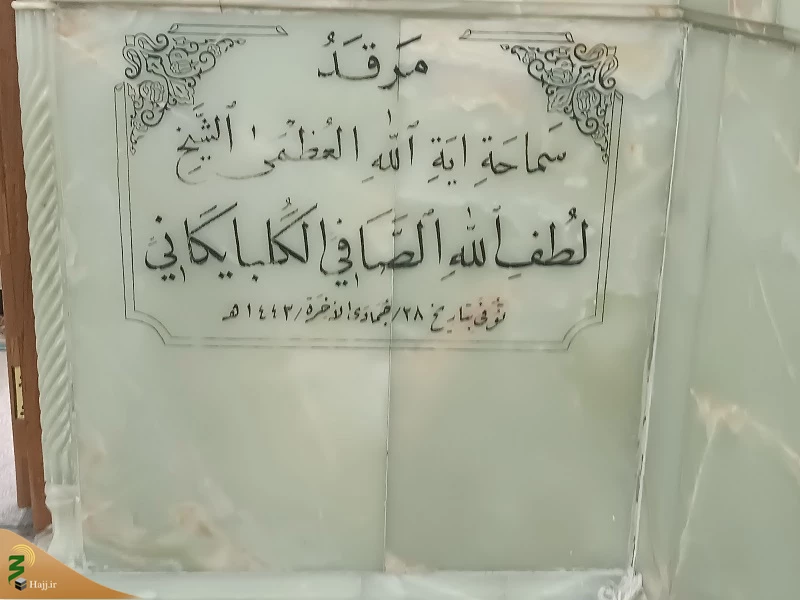 مَرقَدُ
سَماحَةِ ايَةِ ٱللّٰهِ العُظمىٰ ٱلشَّيخِ
لُطفِ ٱللّٰهِ ٱلصَّافِي الگُلبايگاني
تُوُفّيَ بتاريخ ٢٨/جُمادَى الآخرَة/١٤٤٣هـ
Hajj.ir